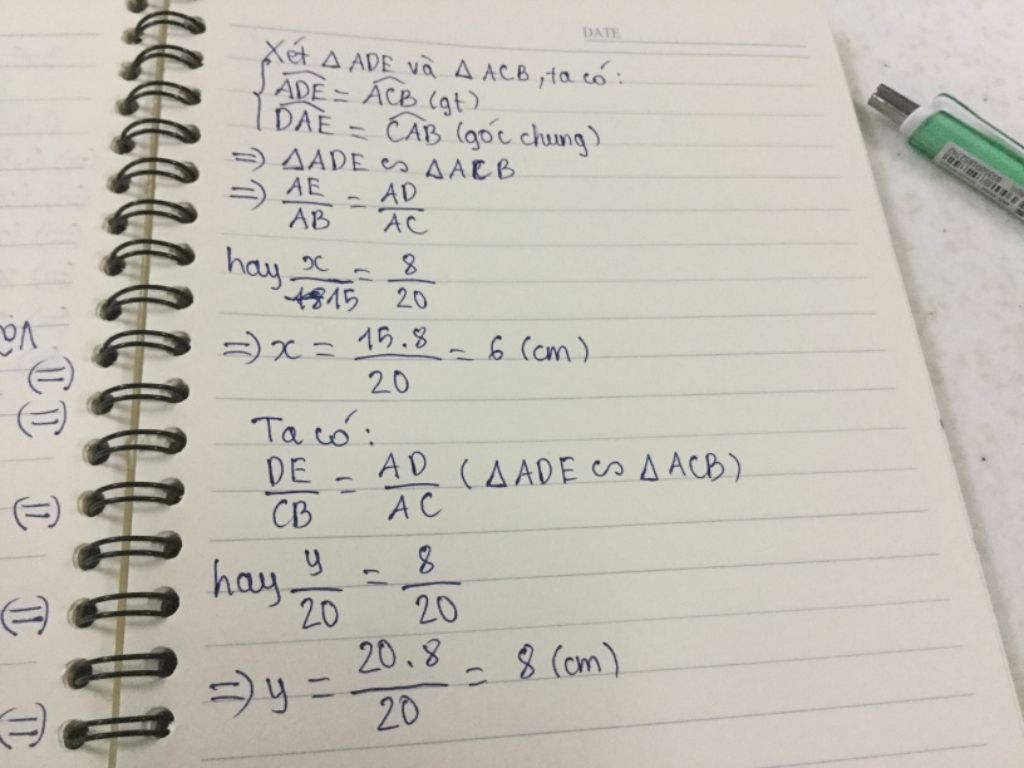 DATE
Xét Δ ADE và Δ ACB, ta có:
{ \widehat{ADE} = \widehat{ACB} (gt)
\widehat{DAE} = \widehat{CAB} (góc chung)
=> ΔADE ∽ ΔACB
=> AE/AB = AD/AC
hay x/15 = 8/20
=> x = 15.8/20 = 6 (cm)
Ta có:
DE/CB = AD/AC (ΔADE ∽ ΔACB)
hay y/20 = 8/20
=> y = 20.8/20 = 8 (cm)